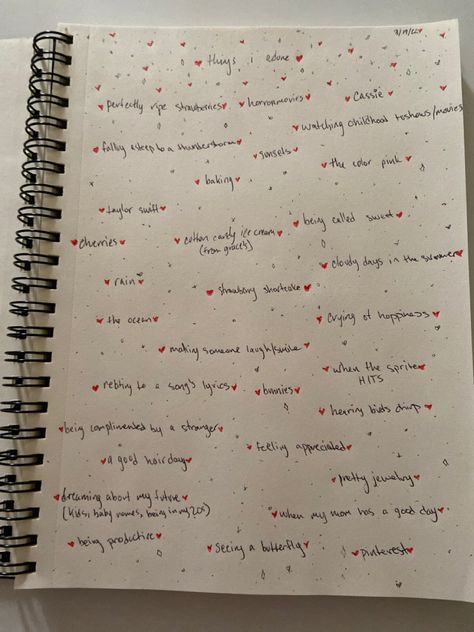 3/19/22
things i adore
perfectly ripe strawberries
horror movies
Cassie
watching childhood tvshows/movies
falling asleep to a thunderstorm
sunsets
the color pink
baking
taylor swift
being called sweet
cherries
cotton candy ice cream
(from grace's)
cloudy days in the summer
rain
strawberry shortcake
the ocean
crying of happiness
making someone laugh/smile
when the sprite
HITS
relating to a song's lyrics
bunnies
hearing birds chirp
being complimented by a stranger
feeling appreciated
a good hair day
pretty jewelry
dreaming about my future
(kids, baby names, being in my 20s)
when my mom has a good day
being productive
seeing a butterfly
pinterest